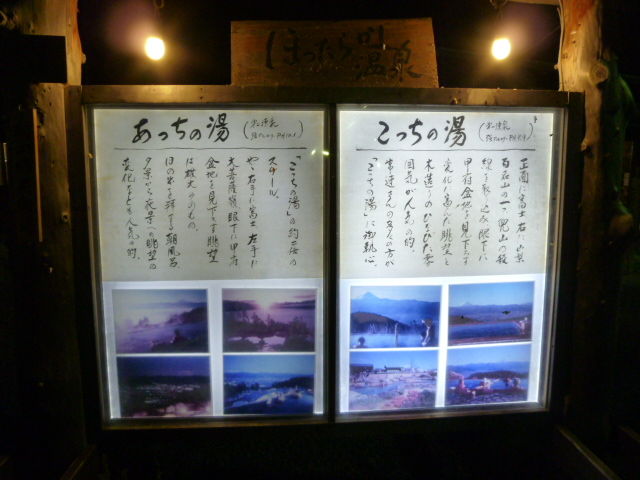 ほったらかし
温泉
あっちの湯
単純泉
強アルカリ PH10.1
「こっちの湯」の約二倍の
スケール。
やゝ右手に富士 左手に
大菩薩嶺 眼下に甲府
盆地を見下す眺望
は雄大そのもの。
日の出を拝する朝風呂、
夕景から夜景への眺望の
変化なども人気の的。
こっちの湯
単純泉
強アルカリ
正面に富士 右に山梨
百名山の一、兜山の稜
線を取り込み 眼下に
甲府盆地を見下す
変化に富んだ眺望と
木造りのひなびた雰
囲気が人気の的。
常連さんの多くの方が
「こっちの湯」に御執心。